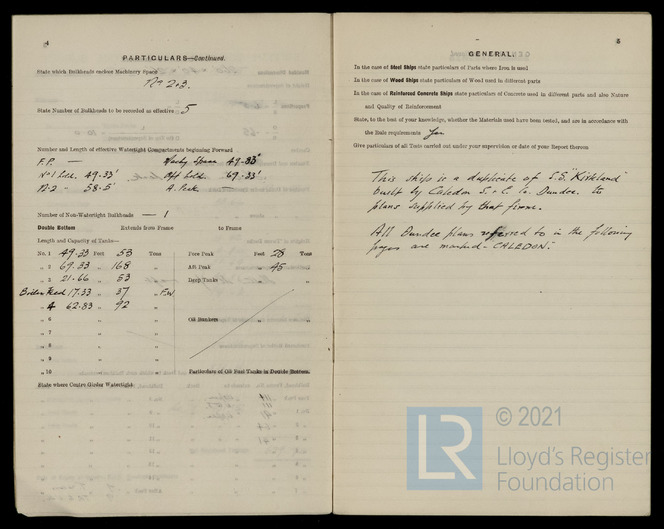 4
PARTICULARS—Continued.
State which Bulkheads enclose Machinery Space
No 2+3.
State Number of Bulkheads to be recorded as effective 5
Number and Length of effective Watertight Compartments beginning Forward
F.P. — Machy Space 49.33'
No 1 hold 49.33' Aft hold 69.33'
No 2 " 58.5' A. Peak —
Number of Non-Watertight Bulkheads — 1
Double Bottom Extends from Frame to Frame
Length and Capacity of Tank—
No. 1 49.33 Feet 53 Tons Fore Peak Feet 28 Tons
„ 2 69.33 „ 168 „ Aft Peak „ 45 „
„ 3 21.66 „ 53 „ Deep Tanks „ „
Boiler Feed 17.33 „ 37 „ F.W
„ 4 62.83 „ 92 „
„ 6 „ „ Oil Bunkers „ „
„ 7 „ „
„ 8 „ „
„ 9 „ „
„ 10 „ „ Particulars of Oil Fuel Tanks in Double Bottom.
State where Centre Girder Watertight
5
GENERAL.
In the case of Steel Ships state particulars of Parts where Iron is used
In the case of Wood Ships state particulars of Wood used in different parts
In the case of Reinforced Concrete Ships state particulars of Concrete used in different parts and also Nature
and Quality of Reinforcement
State, to the best of your knowledge, whether the Materials used have been tested, and are in accordance with
the Rule requirements Yes.
Give particulars of all Tests carried out under your supervision or date of your Report thereon
This ship is a duplicate of S.S. "Kirkland"
built by Caledon S. & E. Co. Dundee. to
plans supplied by that firm.
All Dundee plans referred to in the following
pages are marked - CALEDON.
© 2021
LR
Lloyd's Register
Foundation